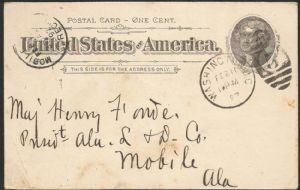 POSTAL CARD – ONE CENT.
United States of America.
THIS SIDE IS FOR THE ADDRESS ONLY.
MOBILE
WASHINGTON
FEB
Maj Henry Fonde.
Presdt Ala. L & D. Co.
Mobile
Ala